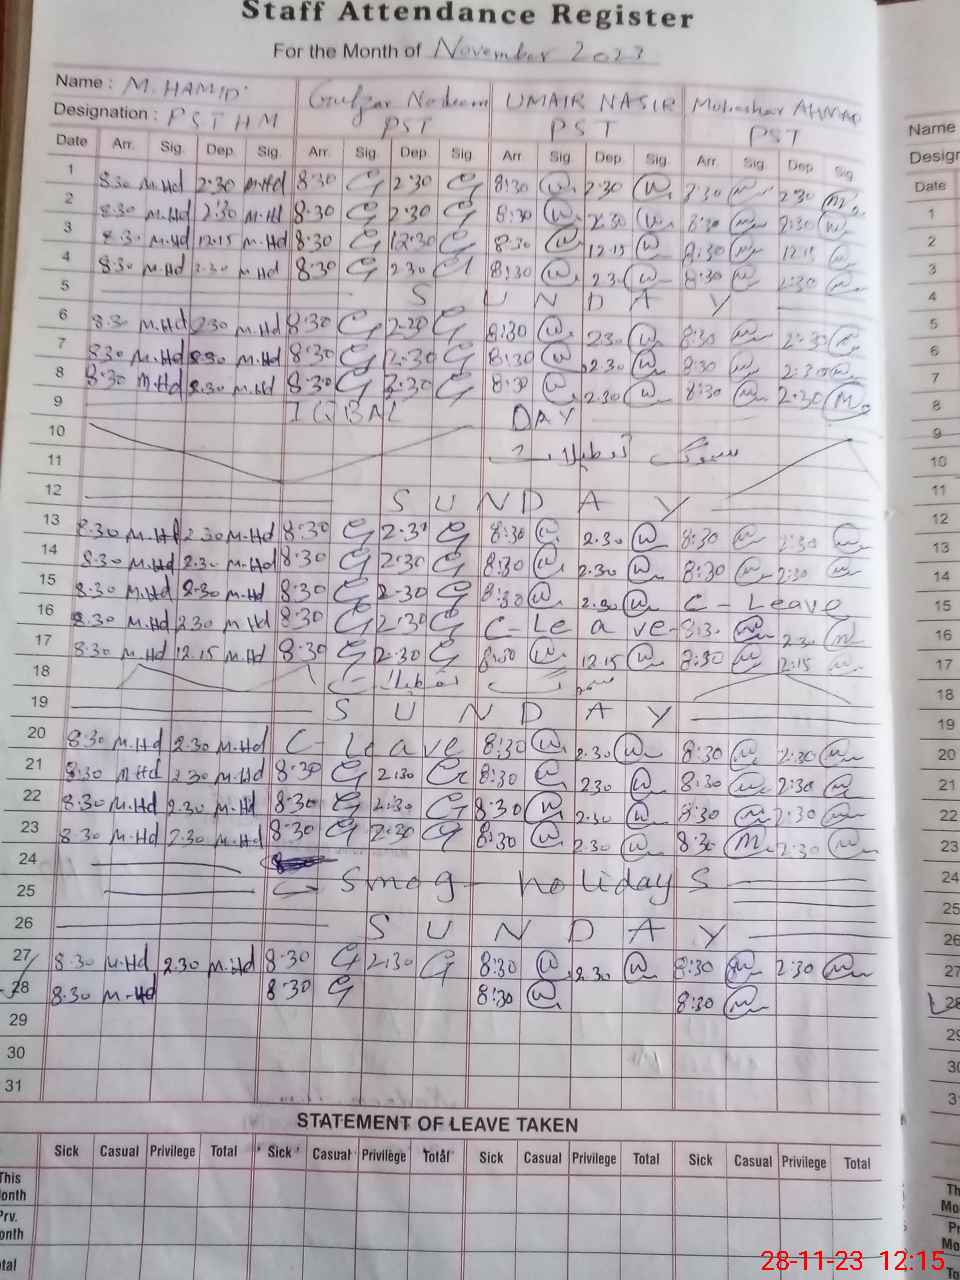 Staff Attendance Register
For the Month of November 2023
Name : M. HAMID Gulzar Nadeem UMAIR NASIR Mubashar AHMAD
Designation : PST HM PST PST PST
Date Arr. Sig. Dep. Sig. Arr. Sig. Dep. Sig. Arr Sig. Dep. Sig. Arr. Sig. Dep Sig.
1 8.30 M.Hd 2.30 M.Hd 8.30 G 2.30 G 8:30 2.30 8:30 2:30
2 8.30 M.Hd 2.30 M.Hd 8.30 G 2.30 G 8:30 2.30 8:30 2:30
3 8.30 M.Hd 12.15 M.Hd 8.30 G 12.30 G 8:30 12.15 8:30 12.15
4 8.30 M.Hd 2.30 M.Hd 8.30 G 2.30 G 8:30 2.30 8:30 2:30
5 SUNDAY
6 8.30 M.Hd 2.30 M.Hd 8.30 G 2.20 G 8:30 2.30 8:30 2:30
7 8.30 M.Hd 8.30 M.Hd 8.30 G 2.30 G 8:30 2.30 8:30 2:30
8 8.30 M.Hd 2.30 M.Hd 8.30 G 2.30 G 8:30 2.30 8:30 2:30
9 IQBAL DAY
10 سموگ تعطیلات
11
12 SUNDAY
13 8.30 M.Hd 2.30 M.Hd 8.30 G 2.31 G 8:30 2.30 8:30 2:30
14 8.30 M.Hd 2.30 M.Hd 8.30 G 2.30 G 8:30 2.30 8:30 2:30
15 8.30 M.Hd 2.30 M.Hd 8.30 G 2.30 G 8:30 2.30 C-Leave
16 8.30 M.Hd 2.30 M.Hd 8.30 G 2.30 G C-Leave 8:30 2:30
17 8.30 M.Hd 12.15 M.Hd 8.30 G 2.30 G 8:30 12.15 8:30 2:15
18 سموگ تعطیلات
19 SUNDAY
20 8.30 M.Hd 2.30 M.Hd C-Leave 8:30 2.30 8:30 2:30
21 8.30 M.Hd 2.30 M.Hd 8.30 G 2.30 G 8:30 2.30 8:30 2:30
22 8.30 M.Hd 2.30 M.Hd 8.30 G 2.30 G 8:30 2.30 8:30 2:30
23 8.30 M.Hd 2.30 M.Hd 8.30 G 2.30 G 8:30 2.30 8:30 2:30
24
25 Smog-holidays
26 SUNDAY
27 8.30 M.Hd 2.30 M.Hd 8.30 G 2.30 G 8:30 2.30 8:30 2:30
28 8.30 M.Hd 8.30 G 8:30 8:30
29
30
31
STATEMENT OF LEAVE TAKEN
Sick Casual Privilege Total Sick Casual Privilege Total Sick Casual Privilege Total Sick Casual Privilege Total
This
Month
Prv.
Month
Total
Name
Date
1
2
3
4
5
6
7
8
9
10
11
12
13
14
15
16
17
18
19
20
21
22
23
24
25
26
27
28
28-11-23 12:15